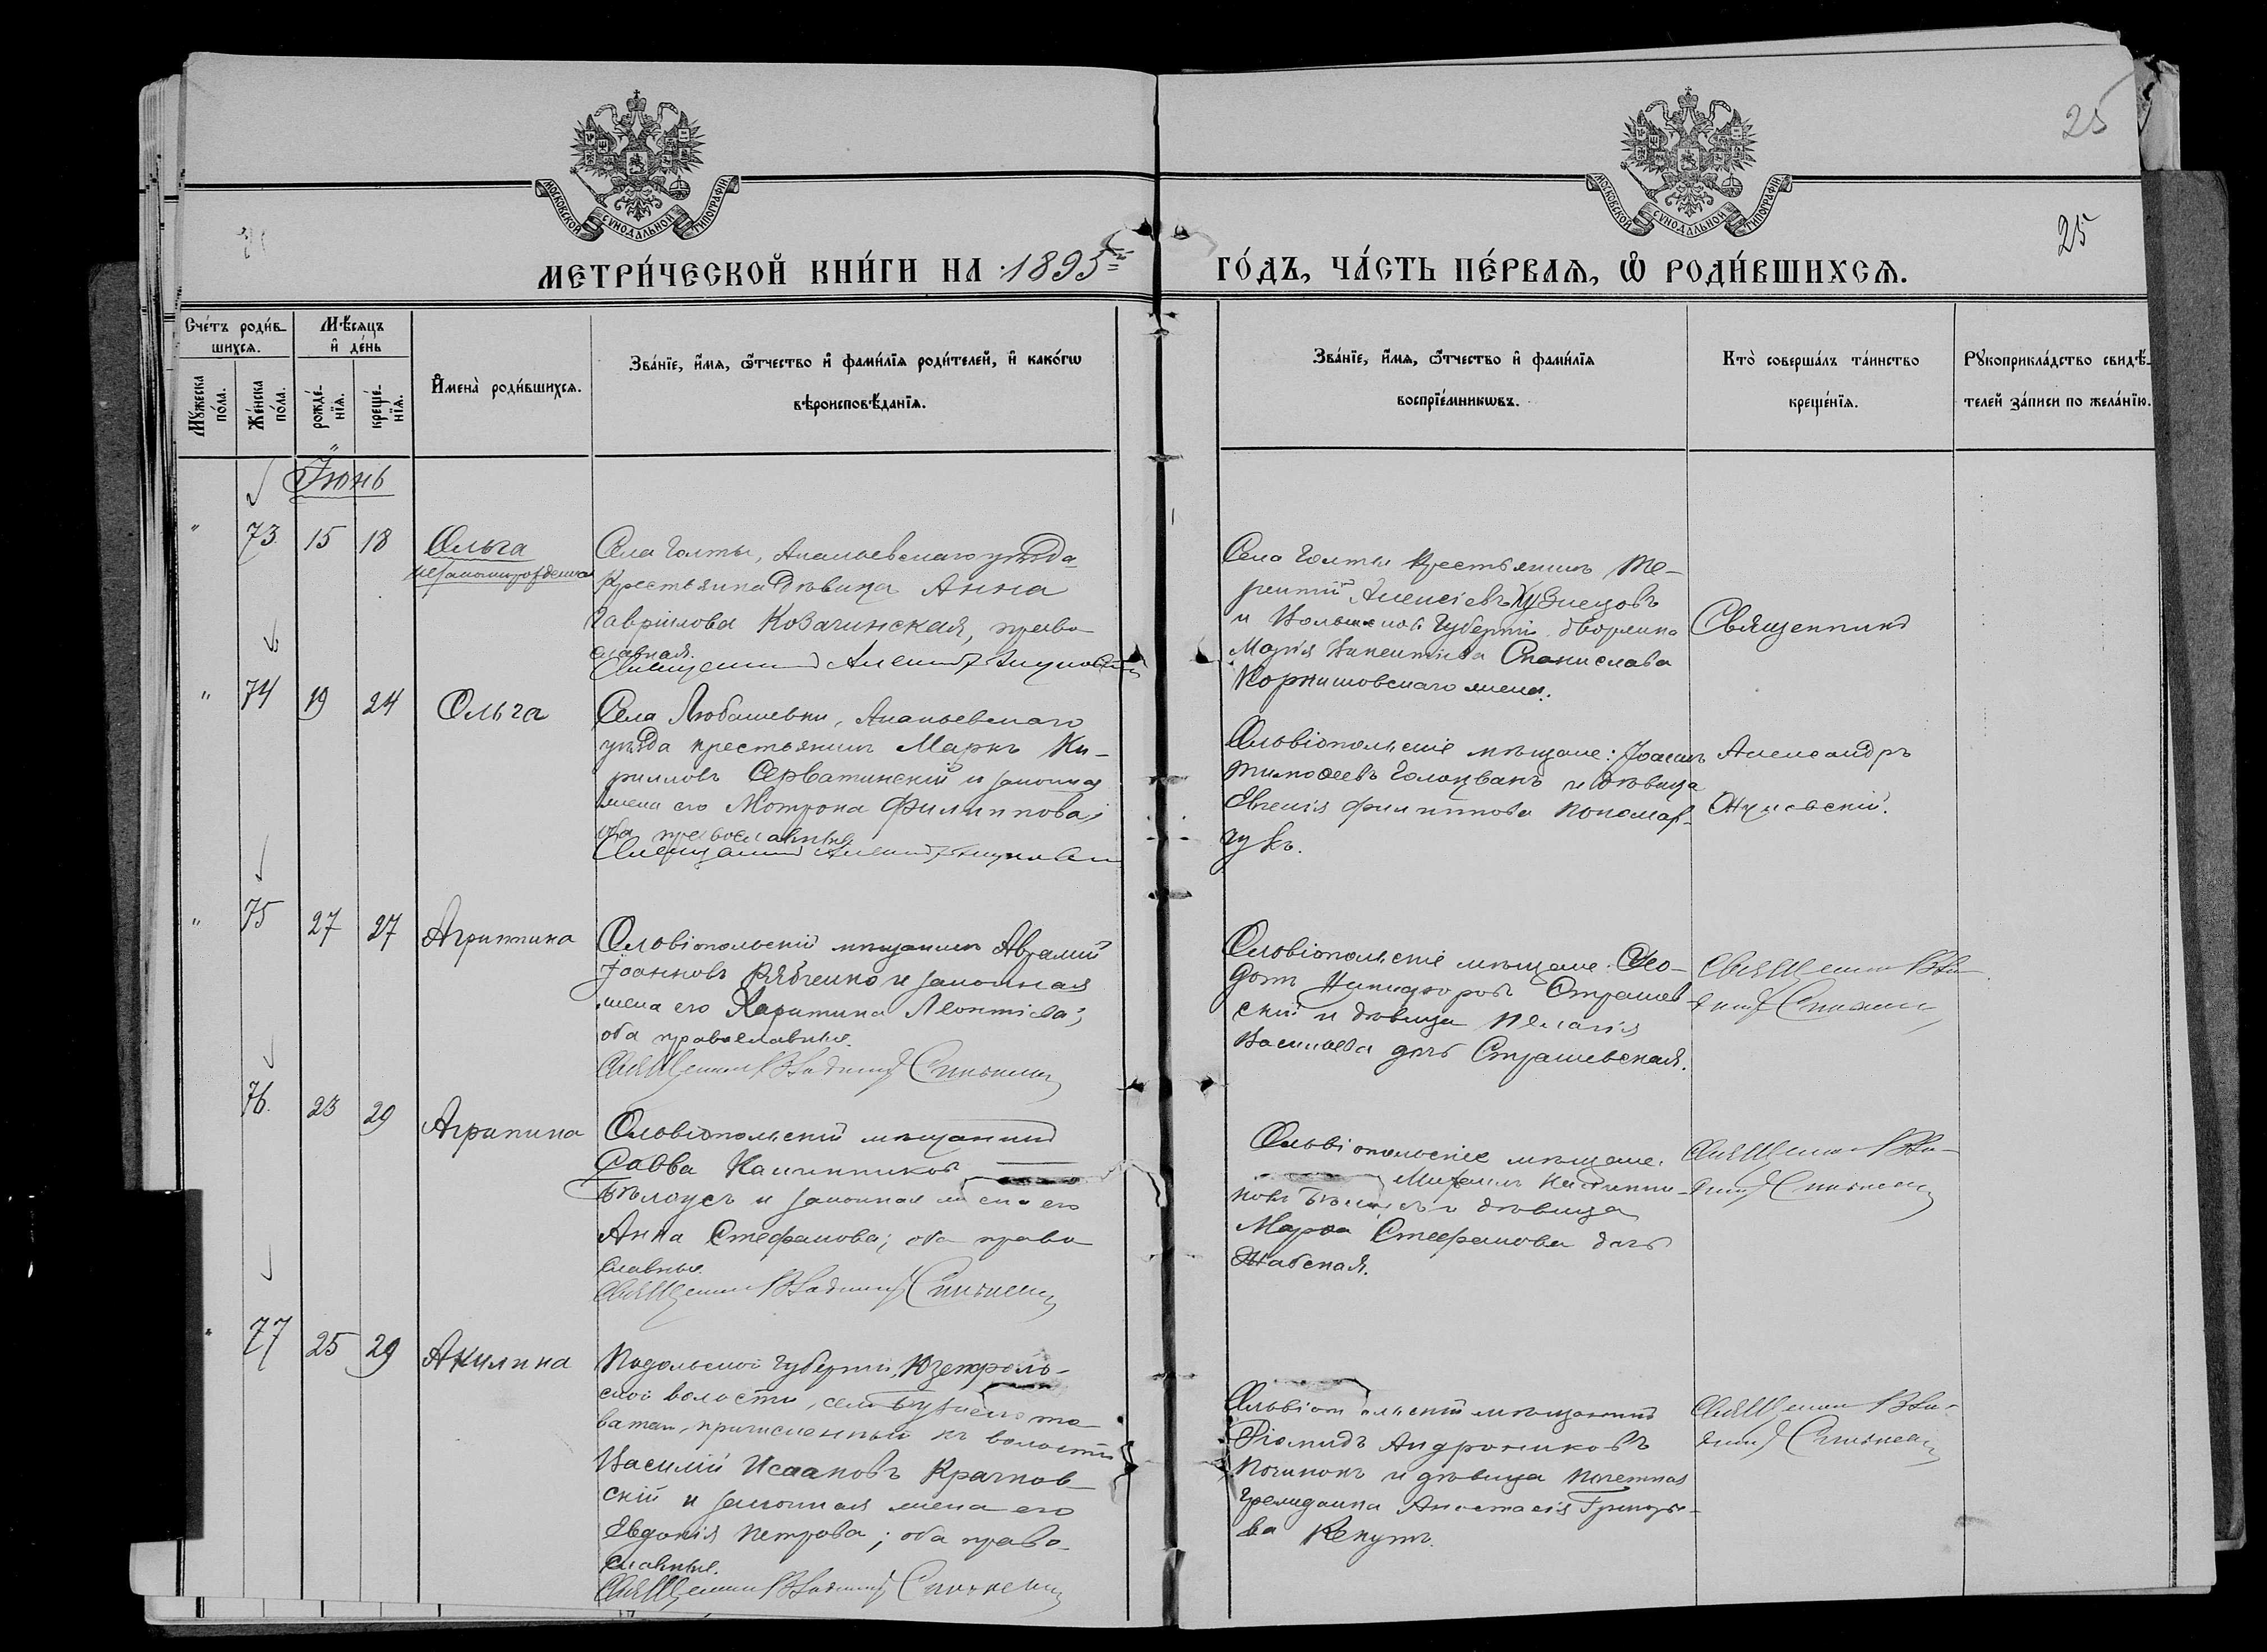 25
МОСКОВСКОЙ СУНОДАЛЬНОЙ ТИПОГРАФІИ
МОСКОВСКОЙ СУНОДАЛЬНОЙ ТИПОГРАФІИ
25
МЕТРИ́ЧЕСКОЙ КНИ́ГИ НА 1895й
ГО́ДЪ, ЧА́СТЬ ПЕ́РВАѦ, Ѡ РОДИ́ВШИХСѦ.
Сче́тъ роди́в-
шихсѧ.
Мꙋ́жеска по́ла.
Же́нска по́ла.
Мѣ́сѧцъ
и҆ де́нь
рожде́-
нїѧ.
креще́-
нїѧ.
И҆мена̀ роди́вшихсѧ.
Зва́нїе, и҆́мѧ, ѻ҆́тчество и҆ фами́лїѧ роди́телей, и҆ како́гѡ
вѣроисповѣ́данїѧ.
Зва́нїе, и҆́мѧ, ѻ҆́тчество и҆ фами́лїѧ
воспрїе́мникѡвъ.
Кто̀ соверша́лъ та́инство
креще́нїѧ.
Рꙋкоприкла́дство свидѣ́-
телей за́писи по жела́нїю.
Іюнь
" 73 15 18 Ольга
незаконнорожденная
Села Голты, Ананьевскаго уѣзда
крестьянка дѣвица Анна
Гавріилова Козачинская, право
славная.
Священникъ Александръ
Села Голты крестьянинъ Те-
рентій Алексіевъ Кузнецовъ
и Волынской Губерніи дворянка
Марія Викентіева Станислава
жена.
Священникъ
" 74 19 24 Ольга
Села Любашевки, Ананьевскаго
уѣзда крестьянинъ Маркъ Ки-
рилловъ Серватинскій и законная
жена его Мотрона Филиппова;
оба православные
Священникъ Александръ
Ольвіопольскіе мѣщане: Іоаннъ
Тимоѳеевъ Голокванъ и дѣвица
Евгенія Филиппова Пономар-
чукъ.
Александръ
" 75 27 27 Агриппина
Ольвіопольскій мѣщанинъ Аврамій
Іоанновъ Рябченко и законная
жена его Харитина Леонтіева;
оба православные.
Священникъ Владиміръ
Ольвіопольскіе мѣщане Ѳео-
дотъ Никифоровъ Страшев
скій и дѣвица Пелагія
Васильева дочь Страшевская.
Священникъ Вла-
диміръ
76. 23 29 Агрипина
Ольвіопольскій мѣщанинъ
Савва Калинниковъ
Бѣлоусъ и законная жена его
Анна Стефанова; оба право
славные.
Священникъ Владиміръ
Ольвіопольскіе мѣщане.
Михаилъ Калинни-
ковъ Бѣлоусъ и дѣвица
Марѳа Стефанова дочь
Жабская.
Священникъ Вла-
диміръ
" 77 25 29 Акилина
Подольской губерніи,
ской волости, села
причисленный къ волости
Василій Исааковъ Крачков
скій и законная жена его
Евдокія Петрова; оба право
славные.
Священникъ Владиміръ
Ольвіопольскій мѣщанинъ
Діомидъ Андрониковъ
Починокъ и дѣвица Почетная
Гражданка Анастасія Григорье-
ва Кекутъ.
Священникъ Вла-
диміръ